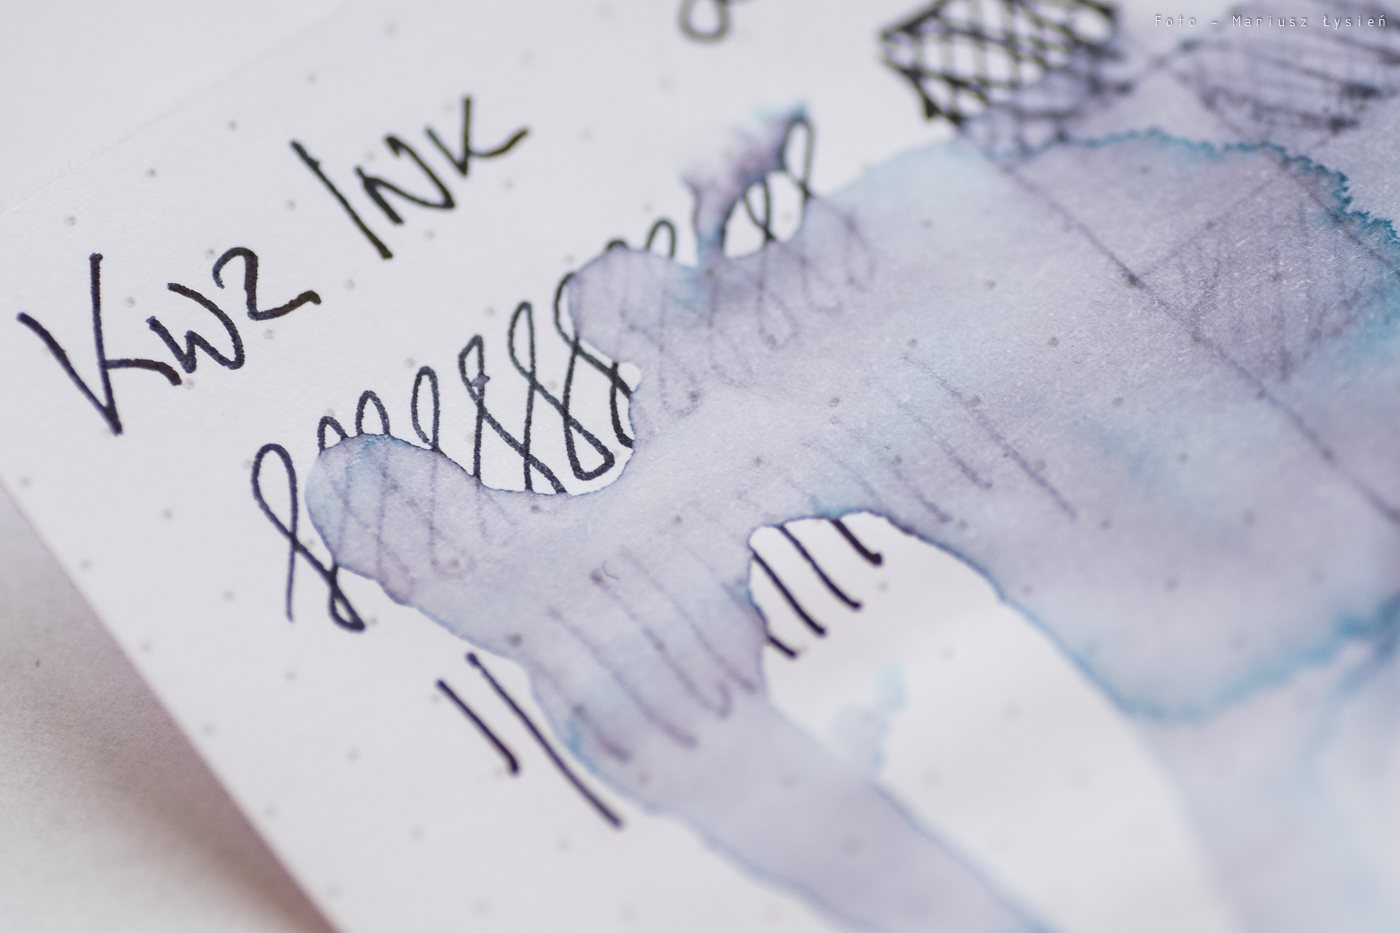 Foto - Mariusz Łysień
KWZ INK